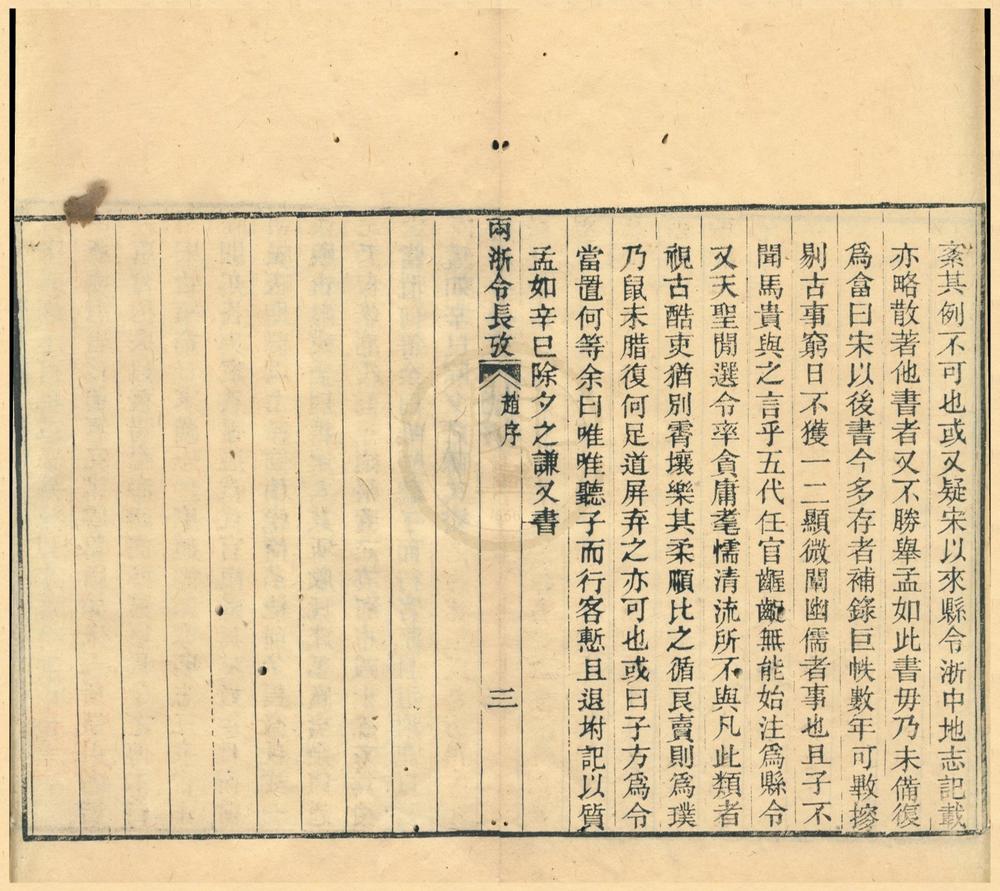 案其例不可也或又疑宋以來縣令浙中地志記載
亦略散著他書者又不勝舉孟如此書毋乃未備復
爲畣曰宋以後書今多存者補錄巨帙數年可斁摻
剔古事窮日不獲一二顯微闡幽儒者事也且子不
聞馬貴與之言乎五代任官齷齪無能始注爲縣令
又天聖閒選令率貪庸耄懦清流所不與凡此類者
視古酷吏猶別霄壤樂其柔順比之循良賣則爲璞
乃鼠未腊復何足道屏弃之亦可也或曰子方爲令
當置何等余曰唯唯聽子而行客慙且退坿記以質
孟如辛巳除夕之謙又書
兩浙令長攷 趙序 三